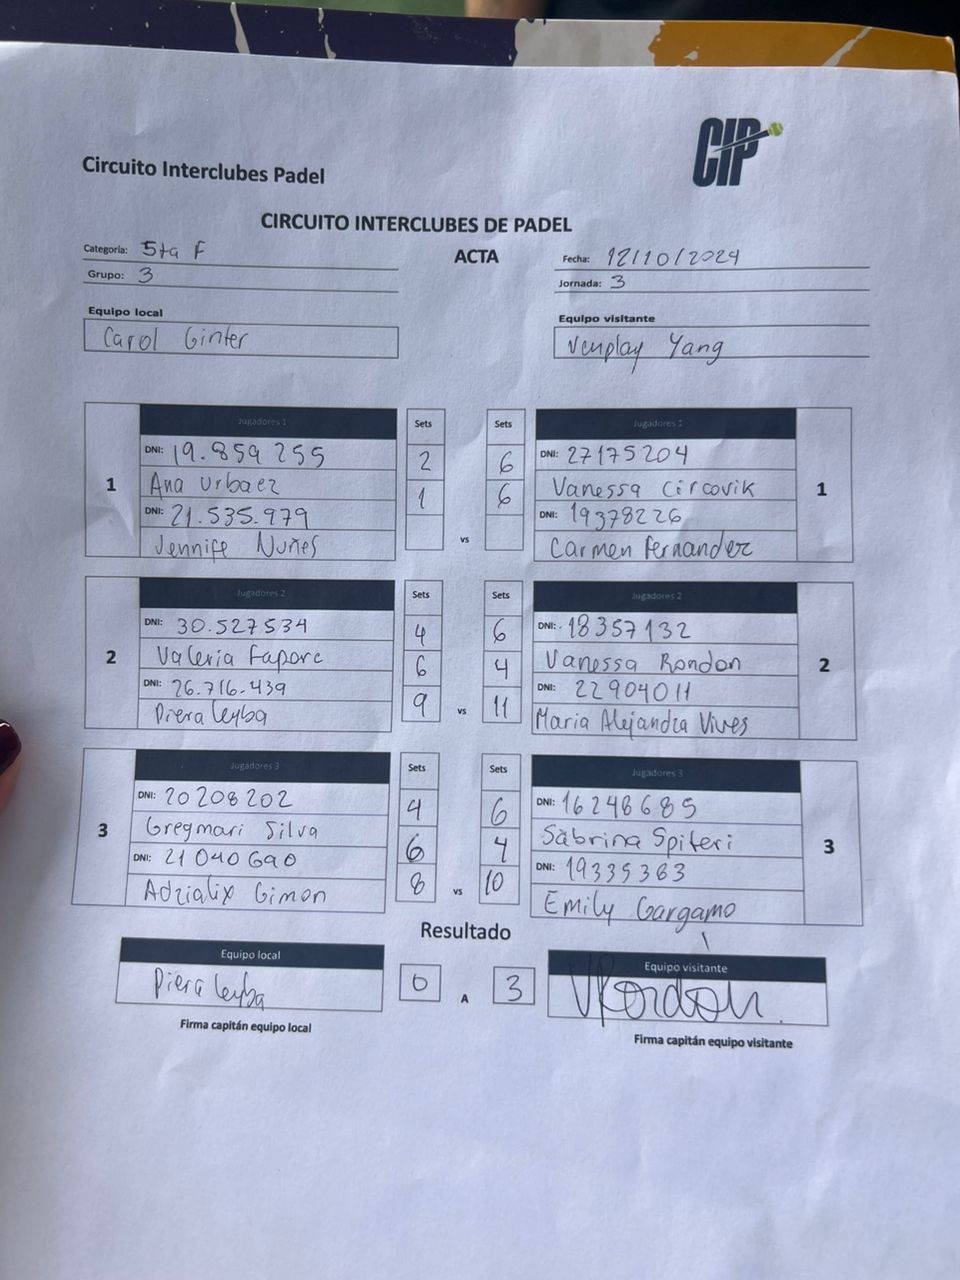 CIP
Circuito Interclubes Padel
CIRCUITO INTERCLUBES DE PADEL
ACTA
Categoría: 5ta F
Grupo: 3
Fecha: 12/10/2024
Jornada: 3
Equipo local
Carol Ginter
Equipo visitante
Venplay Yang
1
Jugadores 1
DNI: 19.859 255
Ana Urbaez
DNI: 21.535.979
Jennife Nuñes
Sets
2
1
vs
Sets
6
6
Jugadores 1
DNI: 27175204
Vanessa Circovik
DNI: 19378226
Carmen Fernandez
1
2
Jugadores 2
DNI: 30.527534
Valeria
DNI: 26.716.439
Piera Leyba
Sets
4
6
9
vs
Sets
6
4
11
Jugadores 2
DNI: 18357132
Vanessa Rondon
DNI: 22904011
Maria Alejandra Vives
2
3
Jugadores 3
DNI: 20208202
Gregmari Silva
DNI: 21040690
Adzialix Gimon
Sets
4
6
8
vs
Sets
6
4
10
Jugadores 3
DNI: 16248685
Sabrina Spiteri
DNI: 19335363
Emily Gargamo
3
Resultado
Equipo local
Piera Leyba
Firma capitán equipo local
0
A
3
Equipo visitante
VRondon
Firma capitán equipo visitante